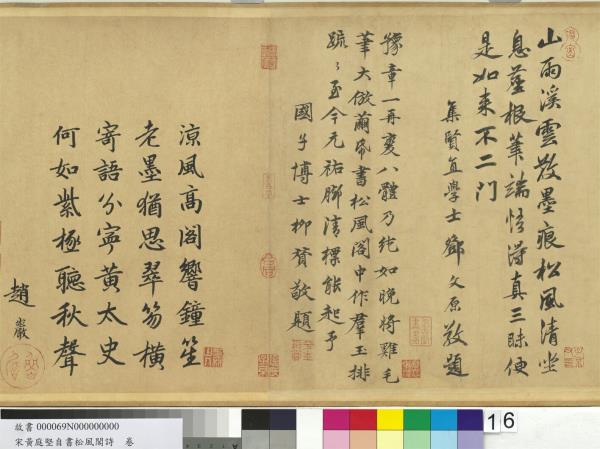 山雨溪雲散墨痕松風清坐
息塵根筆端悟得真三昧便
是如來不二門
集賢直學士鄧文原敬題
豫章一再變八體乃純如晚將雞毛
筆大倣繭帋書松風閣中作群玉排
疏〻至今元祐腳清標能起予
國子博士柳貫敬題
涼風高閣響鐘笙
老墨猶思翠笏橫
寄語分寧黃太史
何如紫極聽秋聲
趙巖
故書 000069N000000000
宋黃庭堅自書松風閣詩 卷
16